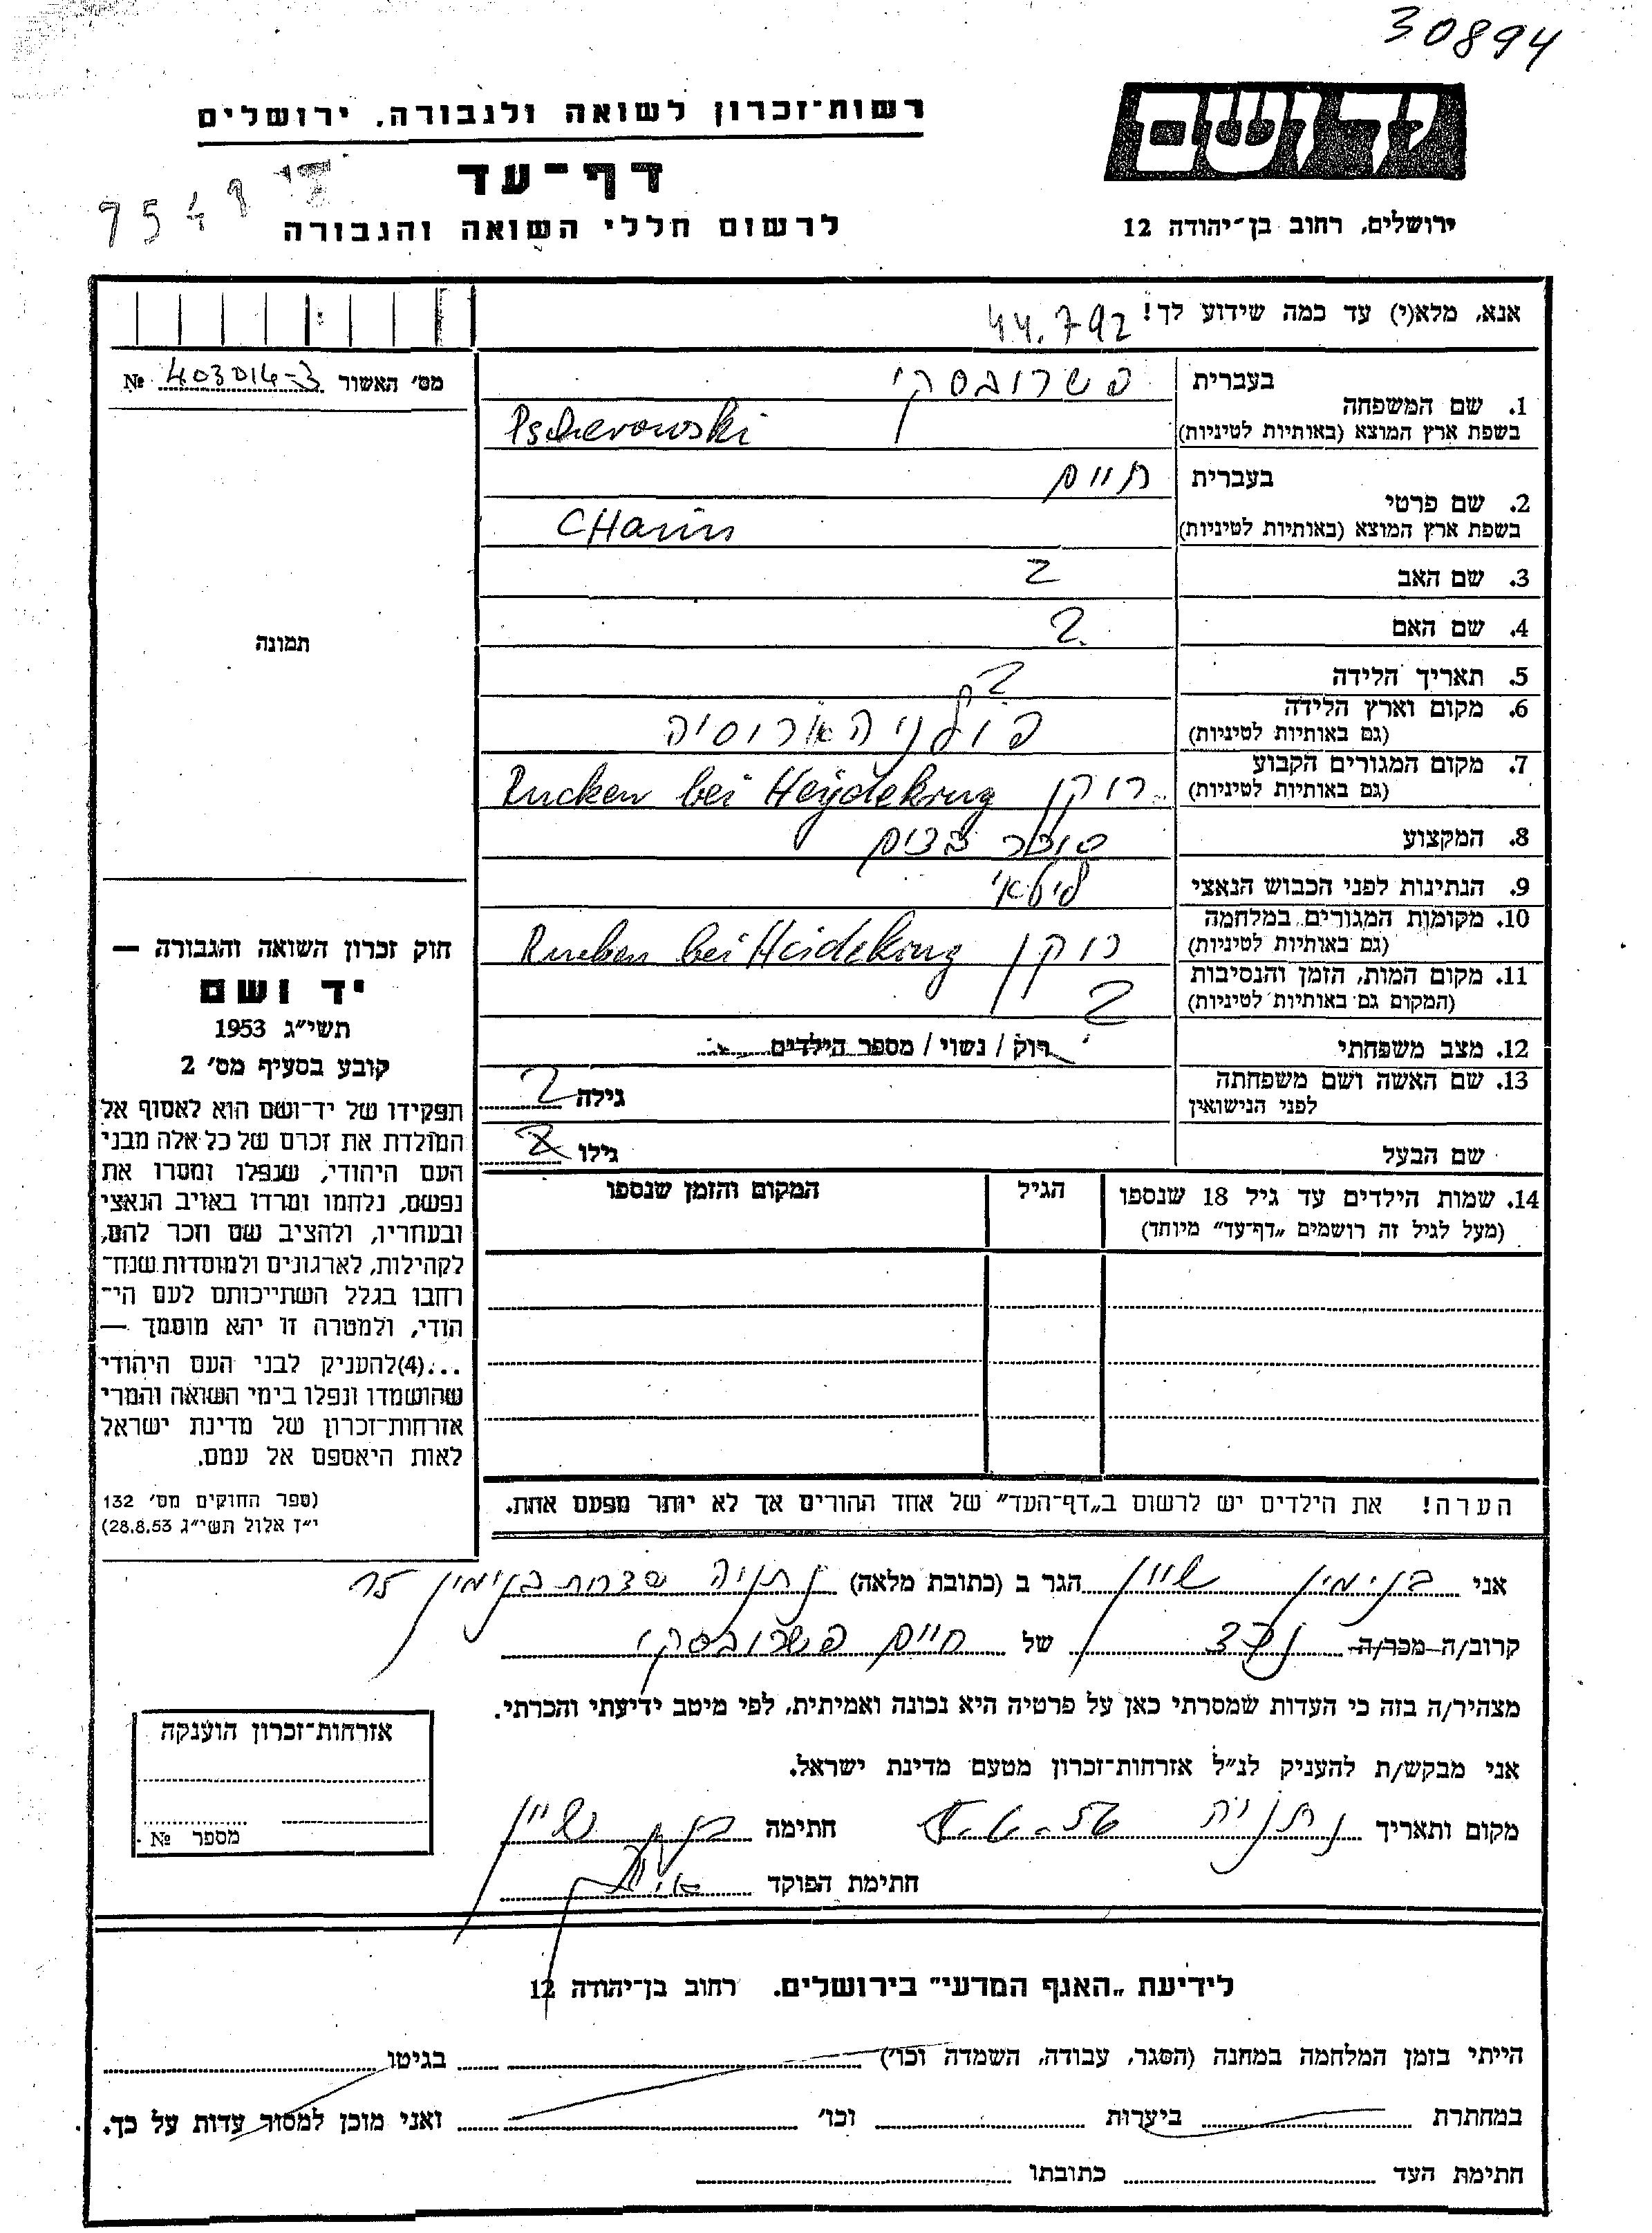 30894
רשות־זכרון לשואה ולגבורה, ירושלים
יד ושם
דף־עד
9548
לרשום חללי השואה והגבורה
ירושלים, רחוב בן־יהודה 12
אנא, מלא(י) עד כמה שידוע לך!
44.792
מס' האשור 403014-3 №
1. שם המשפחה
בעברית פשרובסקי
בשפת ארץ המוצא (באותיות לטיניות) Pscherowski
2. שם פרטי
בעברית חיים
בשפת ארץ המוצא (באותיות לטיניות) CHaim
3. שם האב ?
4. שם האם ?
5. תאריך הלידה ?
6. מקום וארץ הלידה
(גם באותיות לטיניות)
7. מקום המגורים הקבוע רוקן Rucken bei Heydekrug
(גם באותיות לטיניות)
8. המקצוע סוחר
9. הנתינות לפני הכבוש הנאצי ליטאי
10. מקומות המגורים במלחמה רוקן Rucken bei Heidekrug
(גם באותיות לטיניות)
11. מקום המות, הזמן והנסיבות ?
(המקום גם באותיות לטיניות)
12. מצב משפחתי רוק / נשוי / מספר הילדים
13. שם האשה ושם משפחתה גילה ?
לפני הנישואין
שם הבעל גילו
14. שמות הילדים עד גיל 18 שנספו הגיל המקום והזמן שנספו
(מעל לגיל זה רושמים „דף־עד" מיוחד)
הערה! את הילדים יש לרשום ב„דף־העד" של אחד ההורים אך לא יותר מפעם אחת.
תמונה
חוק זכרון השואה והגבורה —
יד ושם
תשי"ג 1953
קובע בסעיף מס' 2
תפקידו של יד־ושם הוא לאסוף אל
המולדת את זכרם של כל אלה מבני
העם היהודי, שנפלו ומסרו את
נפשם, נלחמו ומרדו באויב הנאצי
ובעוזריו, ולהציב שם וזכר להם,
לקהילות, לארגונים ולמוסדות שנח־
רבו בגלל השתייכותם לעם הי־
הודי, ולמטרה זו יהא מוסמך —
...(4)להעניק לבני העם היהודי
שהושמדו ונפלו בימי השואה והמרי
אזרחות־זכרון של מדינת ישראל
לאות היאספם אל עמם.
(ספר החוקים מס' 132
י"ז אלול תשי"ג 28.8.53)
אני בנימין שיין הגר ב (כתובת מלאה) נתניה שדרות בנימין 15
קרוב/ה מכר/ה נכד של חיים פשרובסקי
מצהיר/ה בזה כי העדות שמסרתי כאן על פרטיה היא נכונה ואמיתית, לפי מיטב ידיעתי והכרתי.
אני מבקש/ת להעניק לנ"ל אזרחות־זכרון מטעם מדינת ישראל.
מקום ותאריך נתניה חתימה
חתימת הפוקד
אזרחות־זכרון הוענקה
מספר №
לידיעת „האגף המדעי" בירושלים. רחוב בן־יהודה 12
הייתי בזמן המלחמה במחנה (הסגר, עבודה, השמדה וכו') בגיטו
במחתרת ביערות וכו' ואני מוכן למסור עדות על כך.
חתימת העד כתובתו